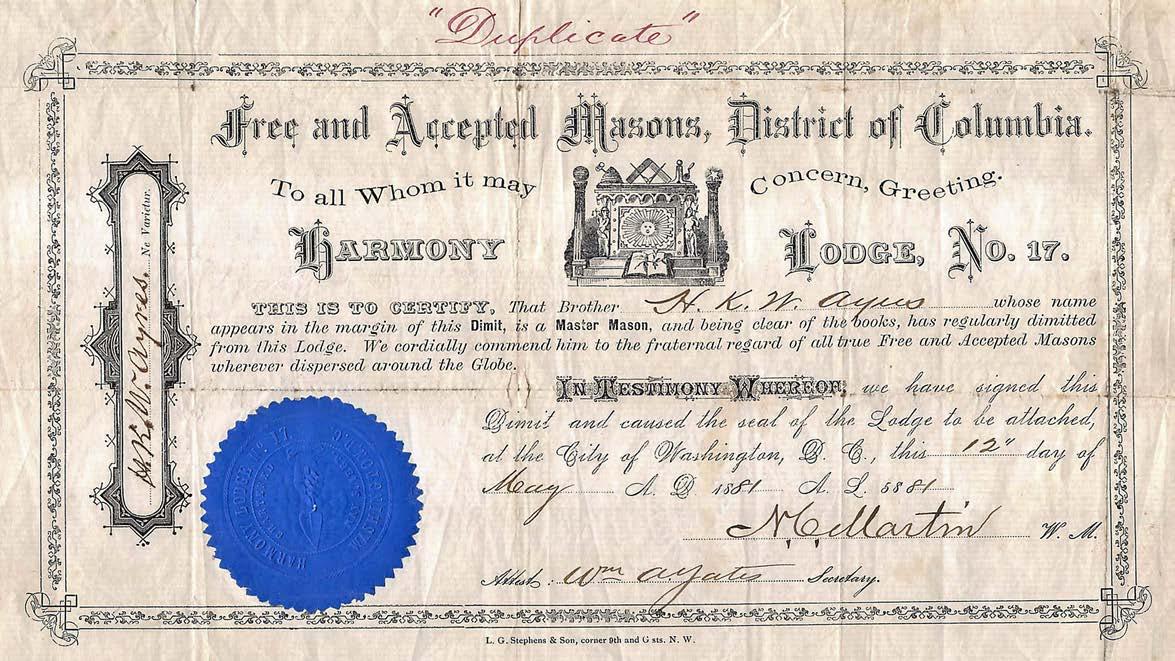 "Duplicate"
Free and Accepted Masons, District of Columbia.
To all Whom it may Concern, Greeting.
HARMONY LODGE, No. 17.
THIS IS TO CERTIFY, That Brother H. K. W. Ayres whose name
appears in the margin of this Dimit, is a Master Mason, and being clear of the books, has regularly dimitted
from this Lodge. We cordially commend him to the fraternal regard of all true Free and Accepted Masons
wherever dispersed around the Globe.
IN TESTIMONY WHEREOF, we have signed this
Dimit and caused the seal of the Lodge to be attached,
at the City of Washington, D. C., this 12" day of
May A. D. 1881 A. L. 5881
N. C. Martin W. M.
Attest: Wm A. Yates Secretary.
H. K. W. Ayres. Ne Varietur.
HARMONY LODGE No. 17
L. G. Stephens & Son, corner 9th and G sts. N. W.